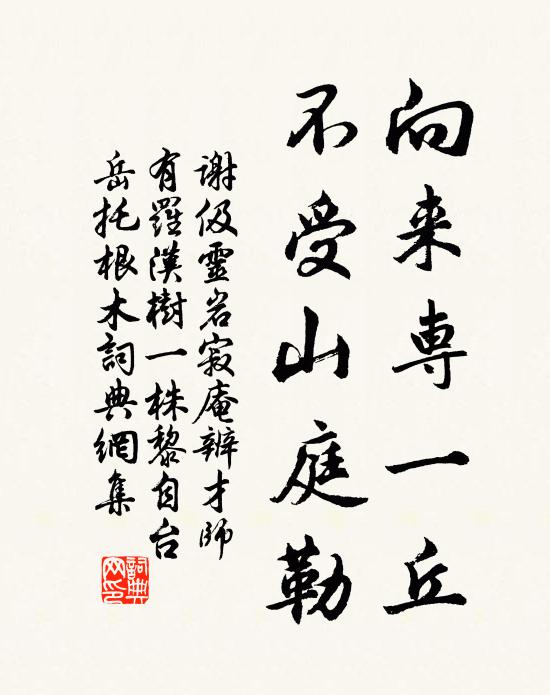 向来専一丘
不受山庭勒
谢伋靈岩寂庵辨才師
有羅漢樹一株黎自台
岳托根木詞典網集
詞典网印